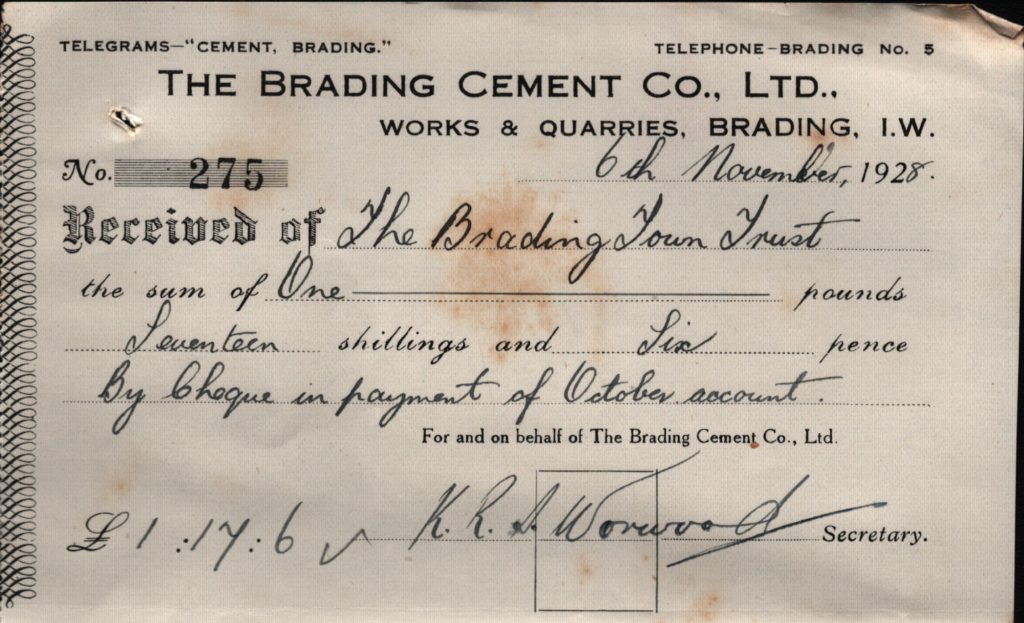 TELEGRAMS—"CEMENT, BRADING." TELEPHONE-BRADING No. 5
THE BRADING CEMENT CO., LTD.,
WORKS & QUARRIES, BRADING, I.W.
No. 275 6th November, 1928.
Received of The Brading Town Trust
the sum of One pounds
Seventeen shillings and Six pence
By Cheque in payment of October account.
For and on behalf of The Brading Cement Co., Ltd.
£1:17:6 K. R. S. Worwood Secretary.